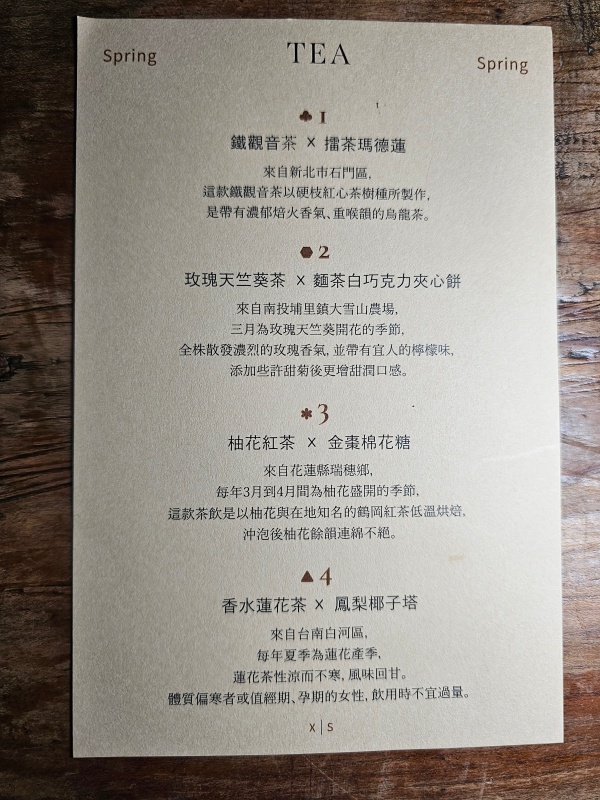 Spring
TEA
Spring
1
鐵觀音茶 × 擂茶瑪德蓮
來自新北市石門區,
這款鐵觀音茶以硬枝紅心茶樹種所製作,
是帶有濃郁焙火香氣、重喉韻的烏龍茶。
2
玫瑰天竺葵茶 × 麵茶白巧克力夾心餅
來自南投埔里鎮大雪山農場,
三月為玫瑰天竺葵開花的季節,
全株散發濃烈的玫瑰香氣, 並帶有宜人的檸檬味,
添加些許甜菊後更增甜潤口感。
3
柚花紅茶 × 金棗棉花糖
來自花蓮縣瑞穗鄉,
每年3月到4月間為柚花盛開的季節,
這款茶飲是以柚花與在地知名的鶴岡紅茶低溫烘焙,
沖泡後柚花餘韻連綿不絕。
4
香水蓮花茶 × 鳳梨椰子塔
來自台南白河區,
每年夏季為蓮花產季,
蓮花茶性涼而不寒, 風味回甘。
體質偏寒者或值經期、孕期的女性, 飲用時不宜過量。
X | S